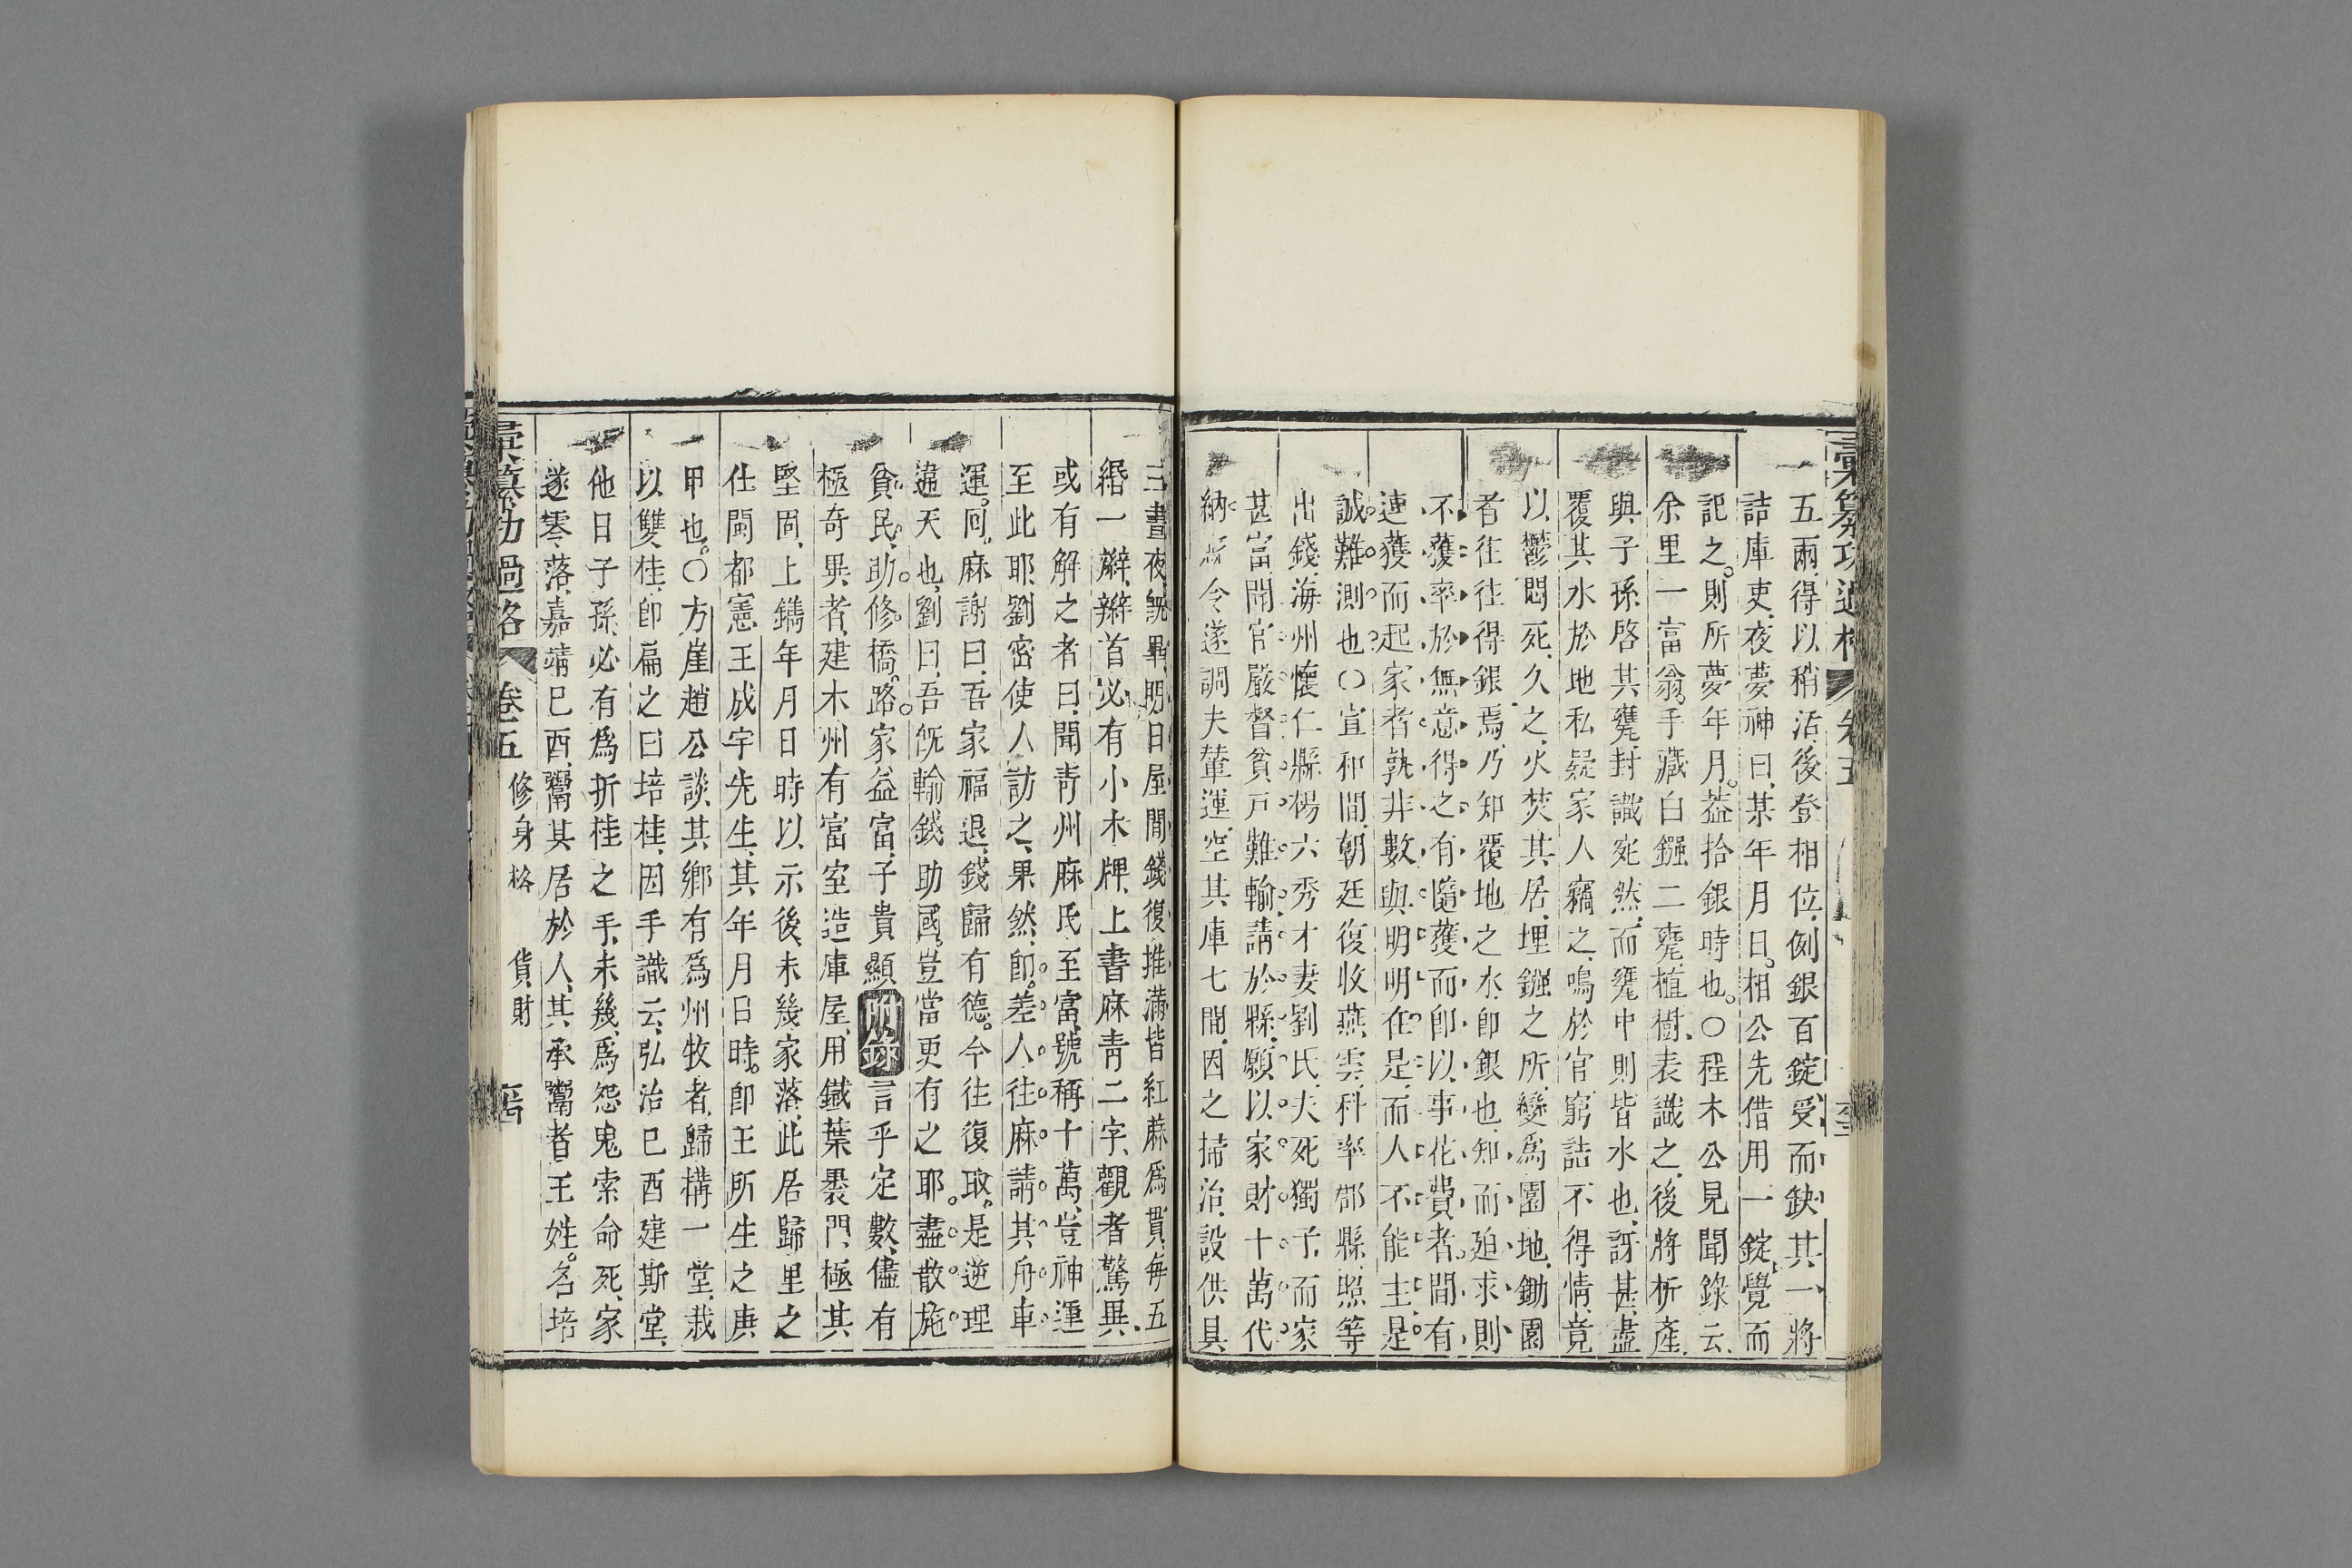 彙纂功過格 卷五
五兩、得以稍活、後登相位、例銀百錠、受而缺其一、將
詰庫吏、夜夢神曰、某年月日、相公先借用一錠、覺而
記之。則所夢年月。葢拾銀時也。○程木公見聞錄云、
余里一富翁、手藏白鏹二甕、植樹、表識之、後將析產、
與子孫啓其甕、封識宛然、而甕中則皆水也、訝甚、盡
覆其水於地、私疑家人竊之、鳴於官、窮詰不得情、竟
以鬱悶死、久之、火焚其居、埋鏹之所、變爲園地、鋤園
者往往得銀焉、乃知覆地之水、卽銀也、知而迫求、則
不獲、率於無意得之、有隨獲而卽以事花費者。間有
連獲而起家者、孰非數與、明明在是、而人不能主。是
誠難測也○宣和間、朝廷復收燕雲、科率郡縣、照等
出錢、海州懷仁縣楊六秀才妻劉氏、夫死獨子、而家
甚富、聞官嚴督貧戶難輸、請於縣、願以家財十萬代
納、縣令遂調夫輦運、空其庫七間、因之掃治、設供具
三晝夜、旣畢、明日屋間錢復堆滿、皆紅蔴爲貫、每五
緡一辮、辮首必有小木牌、上書麻靑二字、觀者驚異、
或有解之者曰、聞靑州麻氏至富、號稱十萬、豈神運
至此耶、劉密使人訪之、果然、卽差人往麻請其舟車
運。回。麻謝曰、吾家福退、錢歸有德。今往復取。是逆理
違天也、劉曰、吾旣輸錢助國、豈當更有之耶。盡散施
貧民、助修橋。路。家益富、子貴顯附錄言乎定數、儘有
極奇異者、建木州有富室造庫屋、用鐵葉褁門、極其
堅固、上鐫年月日時以示後、未幾家落、此居歸里之
仕閩都憲王成宇先生、其年月日時。卽王所生之庚
甲也。○方崖趙公談其鄉有爲州牧者、歸構一堂、栽
以雙桂、卽扁之曰培桂、因手識云、弘治己酉建斯堂、
他日子孫、必有爲折桂之手、未幾、爲怨鬼索命死、家
遂零落、嘉靖己酉、鬻其居於人、其承鬻者王姓。名培
彙纂功過格 卷五 修身格 貨財